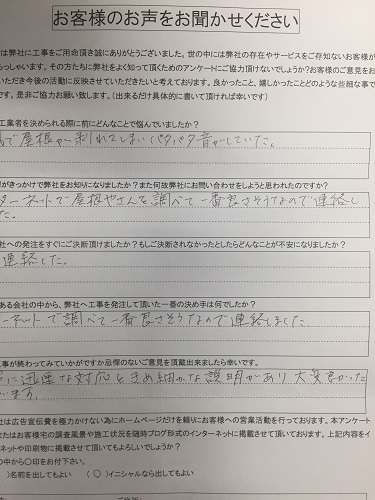 お客様のお声をお聞かせください
は弊社に工事をご用命頂き誠にありがとうございました。世の中には弊社の存在やサービスをご存知ないお客様が
らっしゃいます。その方たちに弊社をよく知って頂くためのアンケートにご協力頂けないでしょうか?お客様のご意見をお
いただき今後の活動に反映させていただきたいと考えております。良かったこと、嬉しかったことどのような些細な事で
です。是非ご協力お願い致します。(出来るだけ具体的に書いて頂ければ幸いです)
工業者を決められる際に前にどんなことで悩んでいましたか?
で屋根が剥れてしまいパタパタ音がしていた。
がきっかけで弊社をお知りになりましたか?また何故弊社にお問い合わせをしようと思われたのですか?
ターネットで屋根やさんを調べて一番良さそうなので連絡し
た。
社への発注をすぐにご決断頂けましたか?もしご決断されなかったとしたらどんなことが不安になりましたか?
連絡した。
ある会社の中から、弊社へ工事を発注して頂いた一番の決め手は何でしたか?
ーネットで調べて一番良さそうなので連絡しました
事が終わってみていかがですか忌憚のないご意見を頂戴出来ましたら幸いです。
に迅速な対応ときめ細かな説明があり、大変良かった
います。
社は広告宣伝費を極力かけない為にホームページだけを頼りにお客様への営業活動を行っております。本アンケート
またはお客様宅の調査風景や施工状況を随時ブログ形式のインターネットに掲載させて頂いております。上記内容をイ
ネットや印刷物に掲載させて頂いてもよろしいでしょうか?
の中から〇印をお付下さい。
)名前を出してもよい (○)イニシャルなら出してもよい